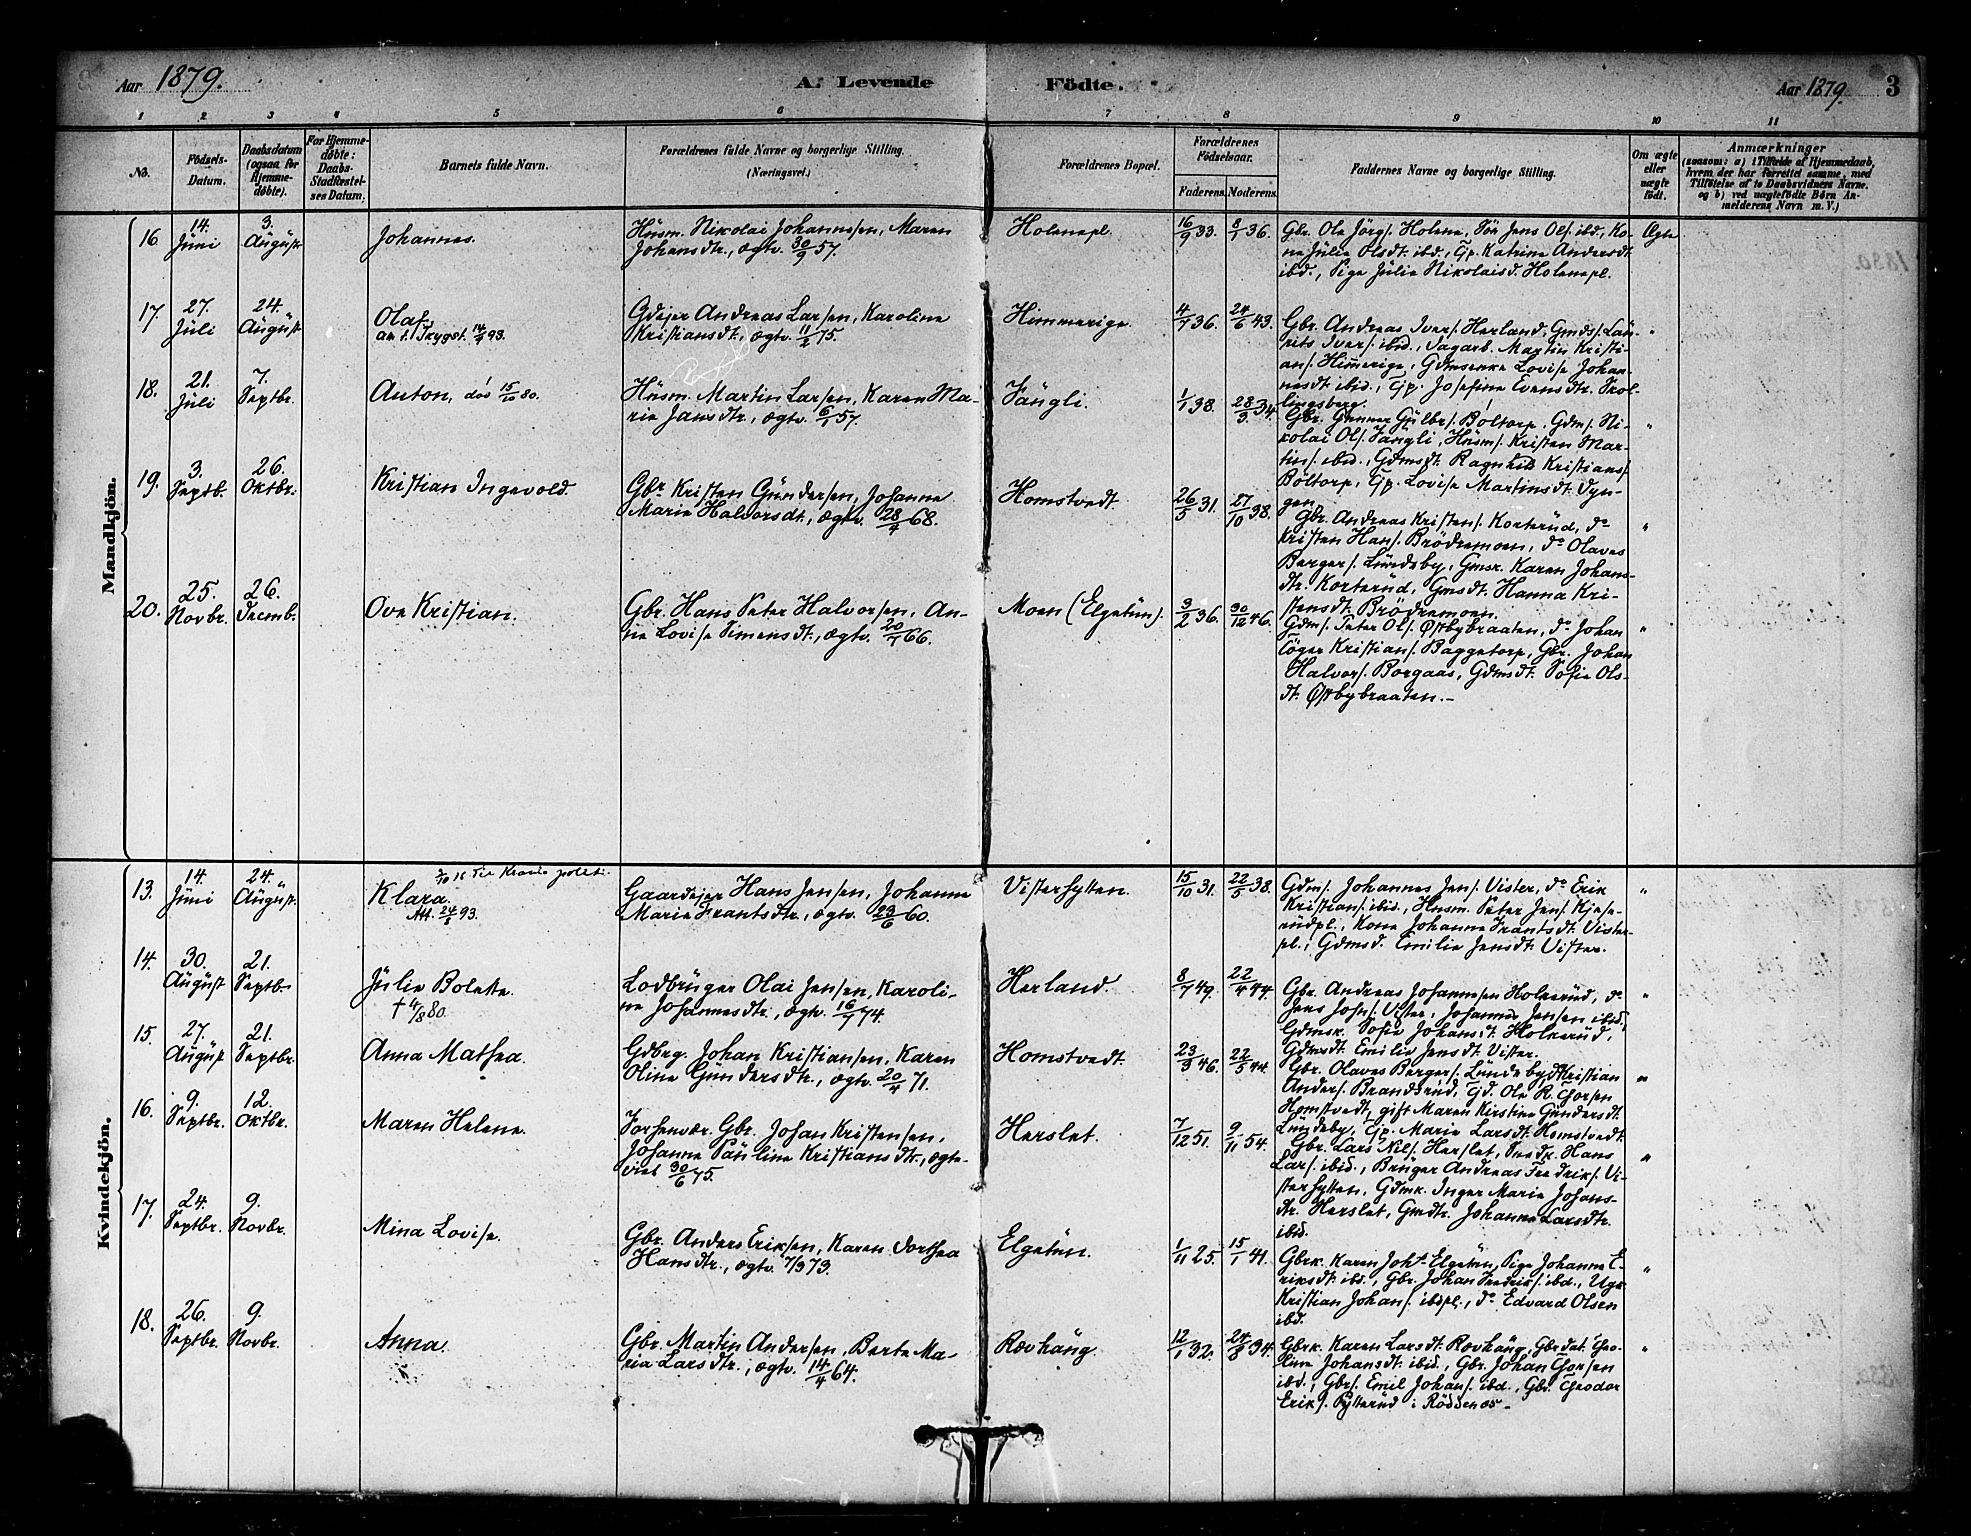 Aar 1879.
A. Levende
Födte.
Aar 1879.
3
1
2
3
4
5
6
7
8
9
10
11
No.
Födsels-
Datum.
Daabsdatum
(ogsaa for
Hjemme-
døbte).
For Hjemme-
døbte:
Daabs-
Stadfæstel-
ses Datum.
Barnets fulde Navn.
Forældrenes fulde Navne og borgerlige Stilling.
(Næringsvei.)
Forældrenes Bopæl.
Forældrenes
Födselsaar.
Faderens.
Moderens.
Faddernes Navne og borgerlige Stilling.
Om ægte
eller
uægte
født.
Anmærkninger
(saasom: a) i Tilfælde af Hjemmedaab,
hvem der har forrettet samme, med
Tilføielse af to Daabsvidners Navne,
og b) ved uægtefødte Børn An-
melderens Navn m. V.)
Mandkjön.
16
14.
Juni
3.
August
Johannes.
Husm. Nikolai Johannesen, Maren
Johansdtr., ægtv. 30/9 57.
Holenepl.
16/9 33.
8/1 36.
Gbr. Ole Jörgs. Holene, Tør Jens Ols. ibd, Ko-
ne Julie Olsdt. ibd., Gp. Katrine Andersdt.
ibd., Pige Julie Nikolaisd. Holenepl.
Ægte
17.
27.
Juli
24.
August
Olaf.
Gdejer Andreas Larsen, Karoline
Kristiansdt., ægtv. 11/2 75.
Himmerige.
4/7 36.
24/6 43.
Gbr. Andreas Ivers. Herland, Gmds. Lau-
rits Ivers. ibid., Dagarb. Martin Kristi-
ans. Himmerige, Gdmsenke Lovise Johan-
nesdt. ibid., Gp. Josefine Evensdtr. Skol-
lingsberg.
"
18.
21.
Juli
7.
Septbr.
Anton, død 15/10 80.
Husm. Martin Larsen, Karen Ma-
rie Jansdtr., ægtv. 6/1 57.
1/1 38.
28/3 34.
Gbr. Gunnar Gulbr. Böltorp, Gdm. Ni-
kolai Ols. Husm. Kristen Mar-
tins. ibid., Gdmsdt. Ragnhild Kristians.
Böltorp, Gp. Lovise Martinsdt. Dyn-
gen.
"
19.
3.
Septb.
26.
Oktbr.
Kristian Ingevold.
Gbr. Kristen Gundersen, Johanne
Marie Halvorsdt., ægtv. 28/9 68.
Homstvedt.
26/5 31.
27/10 38.
Gbr. Andreas Kristens. Korterud, do
Kristen Hans. Brödremoen, do Olaves
Bergers. Lundeby, Gmsk. Karen Johans-
dtr. Korterud, Gmsdt. Hanna Kri-
stensdt. Brödremoen.
"
20.
25.
Novbr.
26.
Decemb.
Ove Kristian.
Gbr. Hans Peter Halvorsen, An-
ne Lovise Simensdt., ægtv. 20/7 66.
Moen (Elgetun).
3/2 36.
30/12 46.
Gdm. Peter Ols. Østbybraaten, do Johan
Kristians. Baggetorp, Gbr. Johan
Halvors. Borgaas, Gdmsdt. Sofie Ols-
dt. Østbybraaten.-
"
Kvindekjön.
13.
14.
Juni
24.
August.
Klara.
Att. 24/5 93.
Gaardejer Hans Jensen, Johanne
Marie Frantsdtr., ægtv. 23/6 60.
Visterflytten.
15/10 31.
22/5 38.
Gdms. Johannes Jens. Vister, do Erik
Kristians. ibid., Husm. Peter Jens. Kjese-
rudpl., Kone Johanne Frantsdt. Vister-
pl., Gdmsd. Emilie Jensdt. Vister.
"
14.
30.
August
21.
Septbr.
Julie Bolette.
† 4/8 80.
Lodbruger Olai Jensen, Karoli-
ne Johannesdtr., ægtv. 16/7 74.
Herland.
8/7 49.
22/4 44.
Gbr. Andreas Johannesen Holkerud, do
Jens Johs. Vister, Johannes Jensen ibid.
Gdmsk. Sofie Johansdt. Holkerud,
Gdmsdt. Emilie Jensdt. Vister.
"
15.
27.
August
21.
Septbr.
Anna Mathea.
Gdbrg. Johan Kristiansen, Karen
Oline Gundersdtr., ægtv. 20/4 71.
Homstvedt.
23/3 46.
22/5 44.
Gbr. Olaves Bergers. Lundeby, do Kristian
Anders. Brandsrud, Gd. Ole R. Thorsen
Homstvedt, gift Maren Kirstine Gundersdt.
Lundeby, Gp. Marie Larsdt. Homstvedt.
"
16.
9.
Septbr.
12.
Oktbr.
Maren Helene.
Forhenvær. Gbr. Johan Kristensen,
Johanne Pauline Kristiansdtr., ægte-
viet 30/6 75.
Herslet.
7/12 51.
9/11 54.
Gbr. Lars Nils. Herslet, Hans
Lars. ibid., Bruger Andreas Fredriks. Vi-
sterflytten, Gdmk. Inger Marie Johans-
dtr. Herslet, Gmdtr. Johanne Larsdtr.
ibid.
"
17.
24.
Septbr.
9.
Novbr.
Mina Lovise.
Gbr. Anders Eriksen, Karen Dorthea
Hansdtr., ægtv. 7/3 73.
Elgetun.
1/11 25.
15/1 41.
Gbrk. Karen Joh. Elgetun, Pige Johanne E-
riksdt. ibd., Gbr. Johan Fredriks. ibd., Ugk
Kristian Johans. ibdpl., do Edvard Olsen
ibd.
"
18.
26.
Septbr.
9.
Novbr.
Anna.
Gbr. Martin Andersen, Berte Ma-
ria Larsdtr., ægtv. 14/4 64.
Rævhaug.
12/1 32.
24/8 34.
Gbrk. Karen Larsdt. Rævhaug, Gbrdat. Tho-
line Johansdt. ibid., Gbr. Johan Thorsen
ibd., Gbrs. Emil Johans. ibd., Gbr. Theodor
Eriks. i Röddenæs.-
"